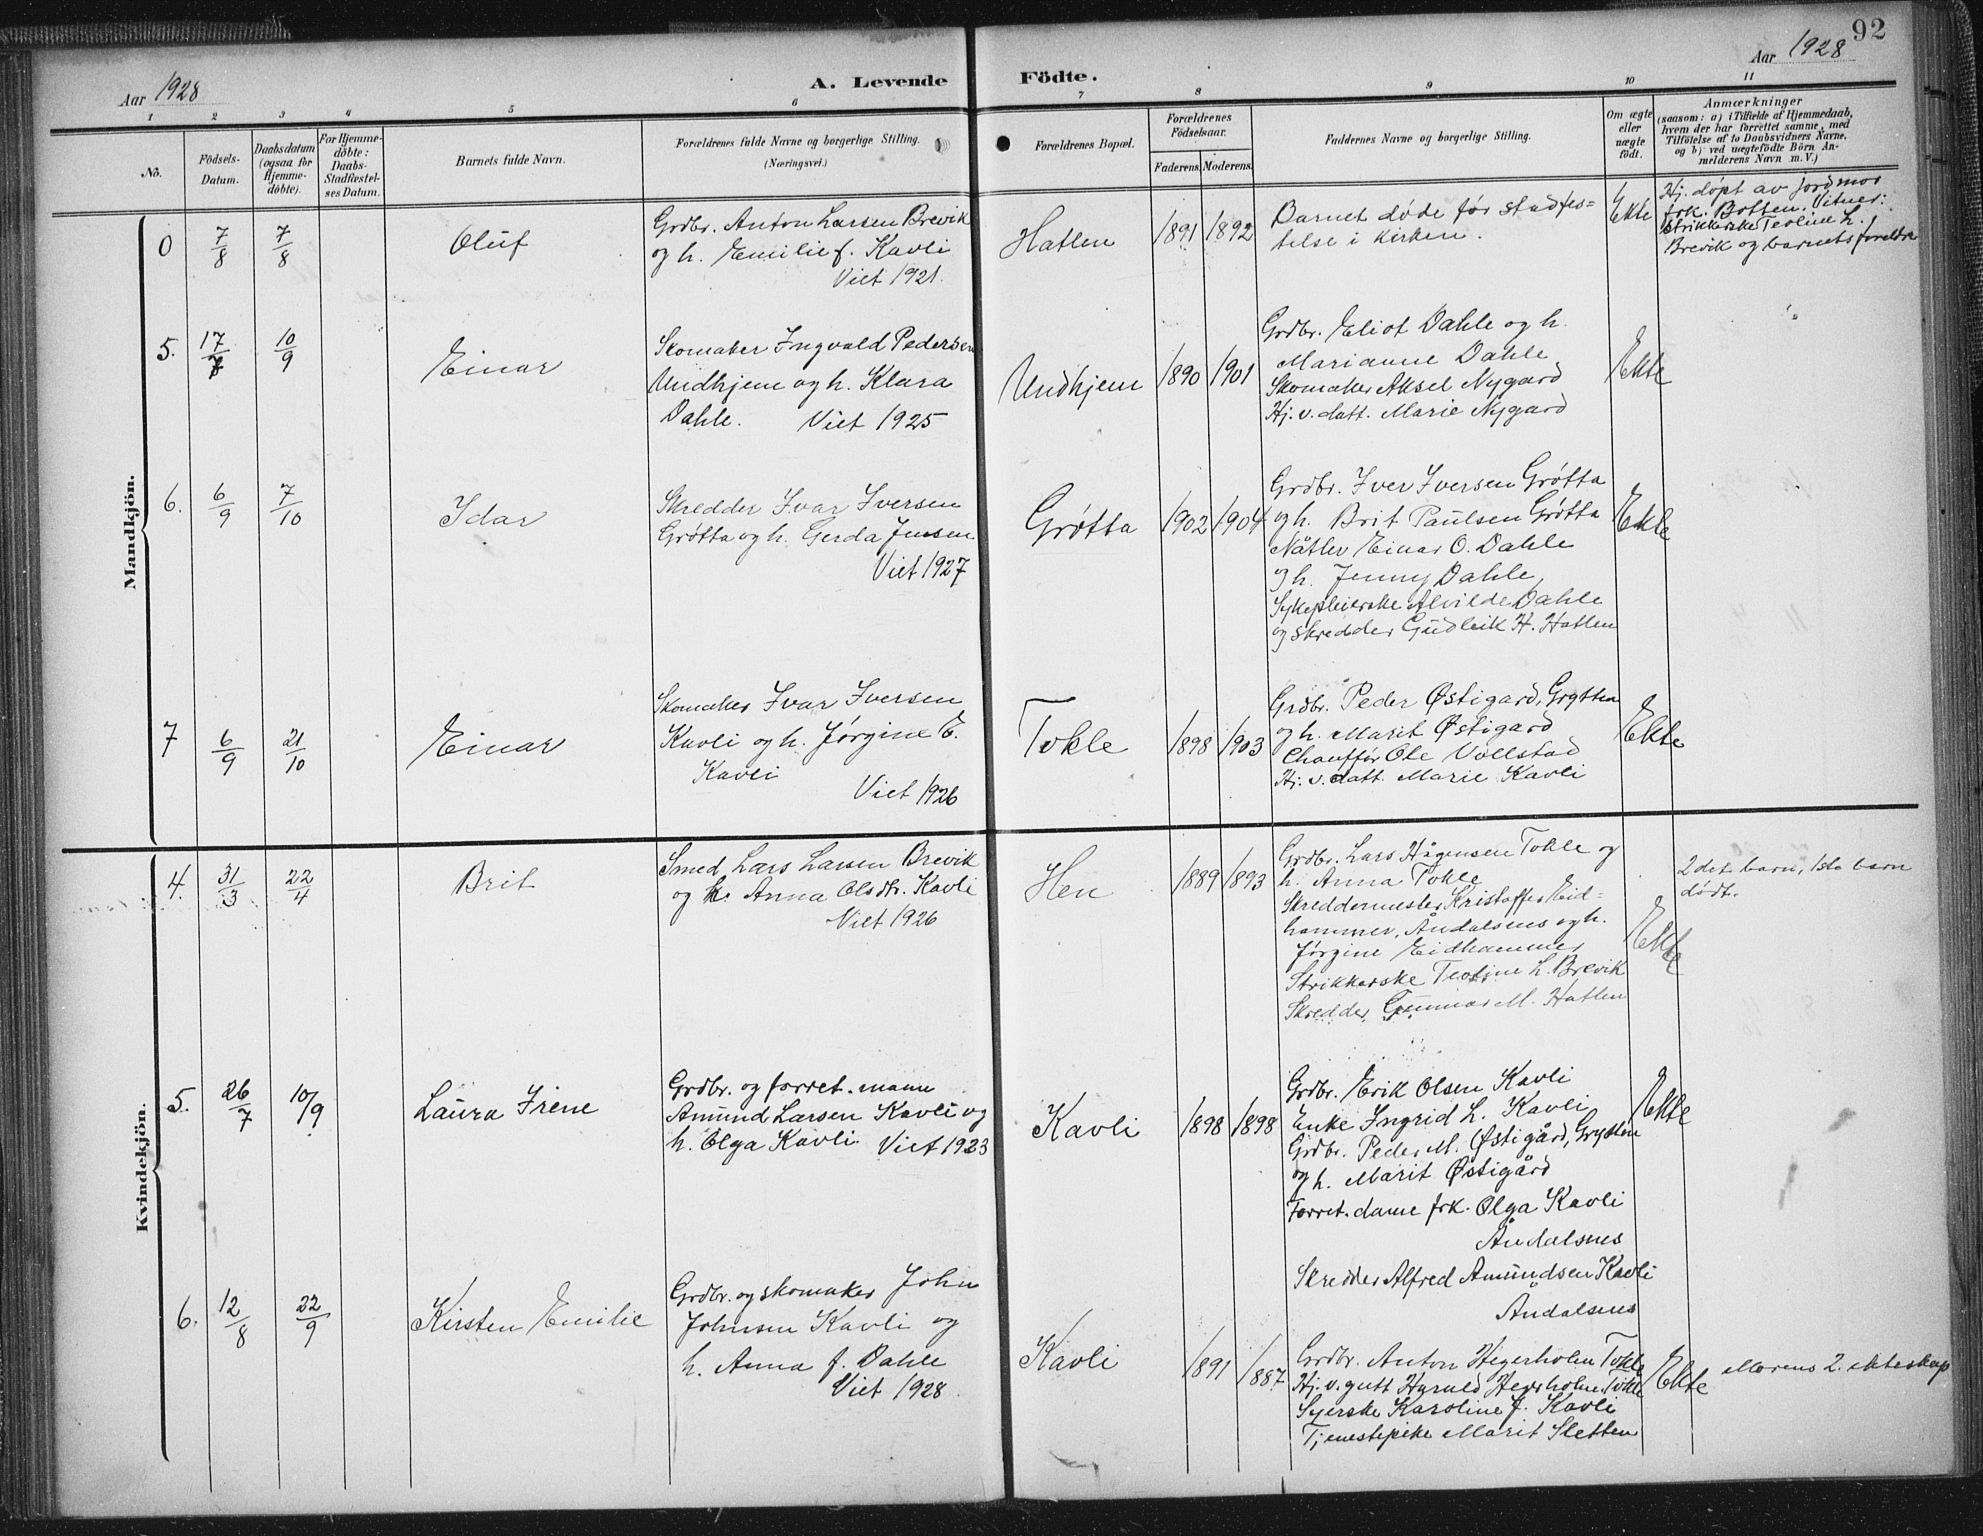 92
Aar 1928
A. Levende
Födte.
Aar 1928
1 2 3 4 5 6 7 8 9 10 11
No.
Födsels-
Datum.
Daabsdatum
(ogsaa for
Hjemme-
döbte).
For Hjemme-
döbte:
Daabs-
Stadfæstel-
ses Datum.
Barnets fulde Navn.
Forældrenes fulde Navne og borgerlige Stilling.
(Næringsvei.)
Forældrenes Bopæl.
Forældrenes
Födselsaar.
Faderens.
Moderens.
Faddernes Navne og borgerlige Stilling.
Om ægte
eller
uægte
födt.
Anmærkninger
(saasom: a) i Tilfælde af Hjemmedaab,
hvem der har forrettet samme, med
Tilföielse af to Daabsvidners Navne.
og b) ved uægtefödte Börn An-
melderens Navn m. V.)
Mandkjön.
0
7/8
7/8
Oluf
Grdbr. Anton Larsen Brevik
og h. Emilie f. Kavli
Viet 1921.
Hatlen
1891
1892
Barnet døde før stadfes-
telse i kirken.
Ekte
Hj. døpt av jordmor
frk. Botten. Vitner:
strikkerske Teoline L.
Brevik og barnets foreldre
5.
17/7
10/9
Einar
Skomaker Ingvald Pedersen
Undhjem og h. Klara
Dahle. Viet 1925
Undhjem
1890
1901
Grdbr. Eliot Dahle og h.
Marianne Dahle,
Skomaker Aksel Nygard
Hj. v. datt. Marie Nygard
Ekte
6.
6/9
7/10
Idar
Skredder Ivar Iversen
Grøtta og h. Gerda Jensen
Viet 1927
Grøtta
1902
1904
Grdbr. Iver Iversen Grøtta
og h. Brit Paulsen Grøtta
Einar O. Dahle
og h. Jenny Dahle,
Sykepleierske Alvilde Dahle
og skredder Gudleik H. Hatlen
Ekte
7
6/9
21/10
Einar
Skomaker Ivar Iversen
Kavli og h. Jørgine E.
Kavli
Viet 1926
Tokle
1898
1903
Grdbr. Peder Østigard, Grytten
og h. Marit Østigard
Chauffør Ole Vollstad
Hj. v. datt. Marie Kavli
Ekte
Kvindekjön.
4.
31/3
22/4
Brit
Smed Lars Larsen Brevik
og h. Anna Olsdtr. Kavli
Viet 1926
Hen
1889
1893
Grdbr. Lars Hågensen Tokle og
h. Anna Tokle
Skreddermester Kristoffer Eid-
hammer, Åndalsnes og h.
Jørgine Eidhammer
Strikkerske Teoline L. Brevik
Skredder Gunnar M. Hatlen
Ekte
2det barn, 1ste barn
dødt.
5.
26/7
10/9
Laura Irene
Grdbr. og forret. mann
Amund Larsen Kavli og
h. Olga Kavli. Viet 1923
Kavli
1898
1898
Grdbr. Erik Olsen Kavli
Enke Ingrid L. Kavli
Grdbr. Peder M. Østigård, Grytten
og h. Marit Østigård
Forret. dame frk. Olga Kavli
Åndalsnes
Skredder Alfred Amundsen Kavli
Åndalsnes
Ekte
6.
12/8
22/9
Kirsten Emilie
Grdbr. og skomaker John
Johnsen Kavli og
h. Anna f. Dahle
Viet 1928.
Kavli
1891
1887
Grdbr. Anton Hegerholm Tokle
Hj. v. gutt Harald Hegerholm, Tokle
Syerske Karoline J. Kavli
Tjenestepike Marit Sletten
Ekte
Morens 2. ekteskap